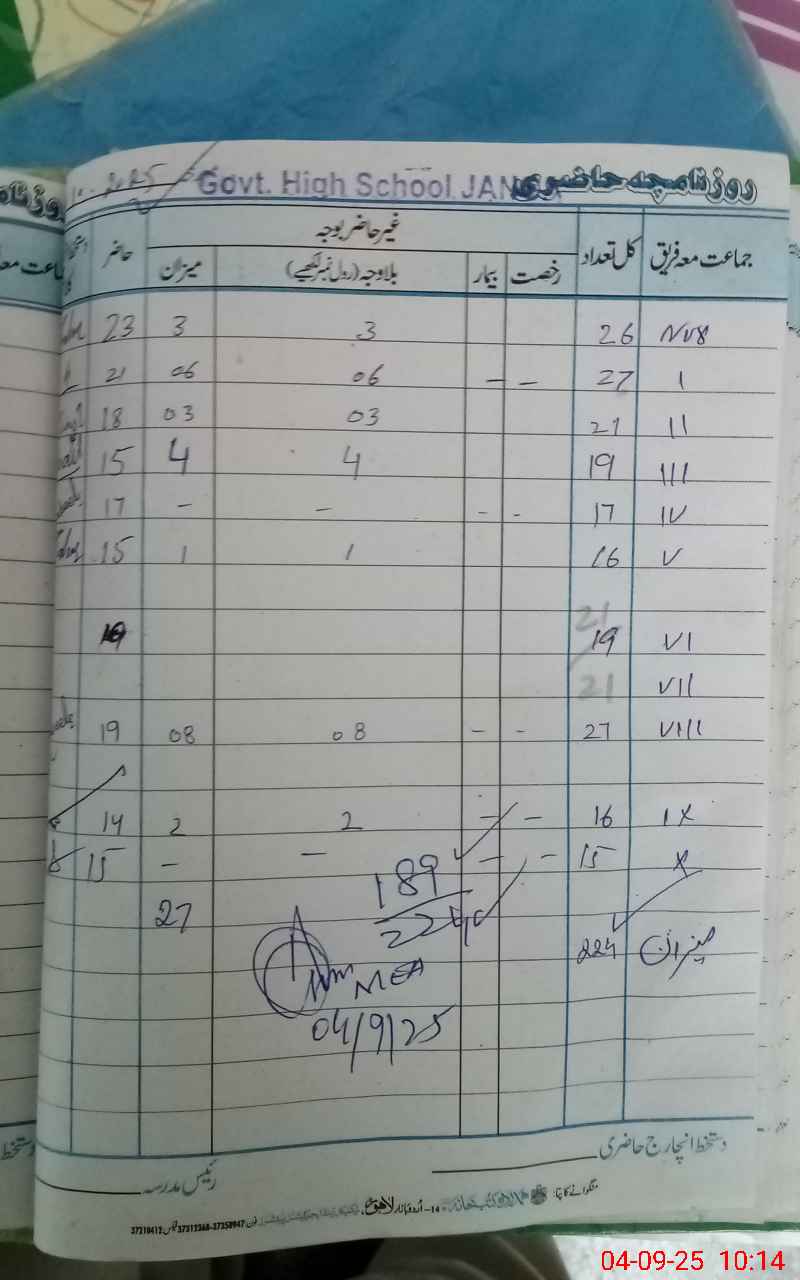 Govt. High School JAN روزنامچہ حاضری
جماعت معہ فریق کل تعداد غیر حاضر بوجہ حاضر
رخصت بیمار بلاوجہ (رول نمبر لکھیے) میزان
26 3 3 23
I 27 - - 06 06 21
II 21 03 03 18
III 19 4 4 15
IV 17 - - - - 17
V 16 1 1 15
21
VI 19
VII 21
VIII 27 - - 08 08 19
IX 16 - - 2 2 14
X 15 - - - - 15
189
27
224
میزان 224
MEA
04/9/25
دستخط انچارج حاضری
رئیس مدرسہ
منگوانے کا پتا:
14-اُردو بازار لاہور
فون 37358947-37312368 فیکس 37210412
04-09-25 10:14